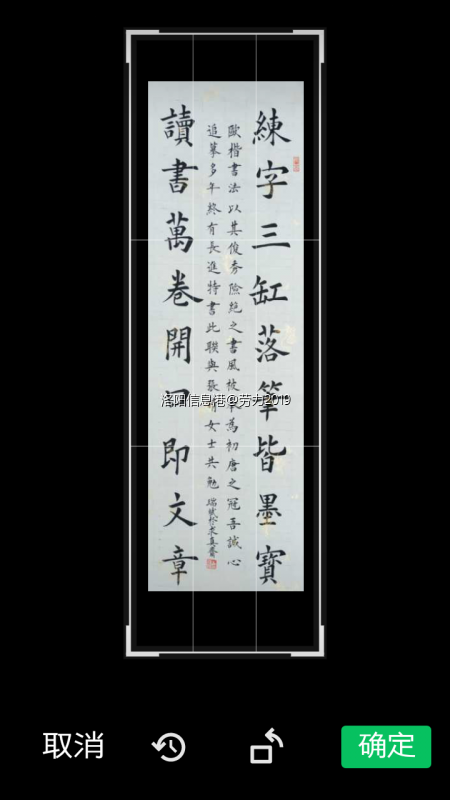 練字三缸落筆皆墨寶
歐楷書法以其俊秀險絕之書風被為初唐之冠吾誠心
追摹多年終有長進特書此聯與張女士共勉
讀書萬卷開口即文章
洛阳信息港@劳力2019
取消
确定